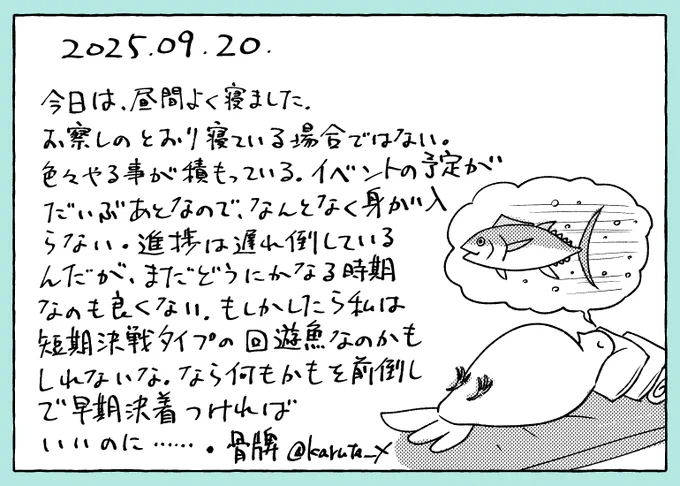 2025.09.20.
今日は、昼間よく寝ました.
お察しのとおり寝ている場合ではない。
色々やる事が積もっている。イベントの予定が
だいぶあとなので、なんとなく身が入
らない。進捗は遅れ倒している
んだが、まだどうにかなる時期
なのも良くない。もしかしたら私は
短期決戦タイプの回遊魚なのかも
しれないな。なら何もかもを前倒し
で早期決着つければ
いいのに……。骨牌 @karuta_x